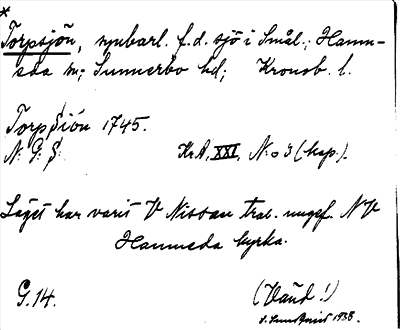 *
Torpsjön, synbarl. f.d. sjö i Smål.; Hamn-
eda sn; Sunnerbo hd; Kronob. l.
TorpSiön 1745.
N. G. S. KrA, XXI, N:o 3 (kap.).
Läget har varit V Nissan trol. ungef. NV
Hamneda kyrka.
G. 14. (Vänd!)
1938.